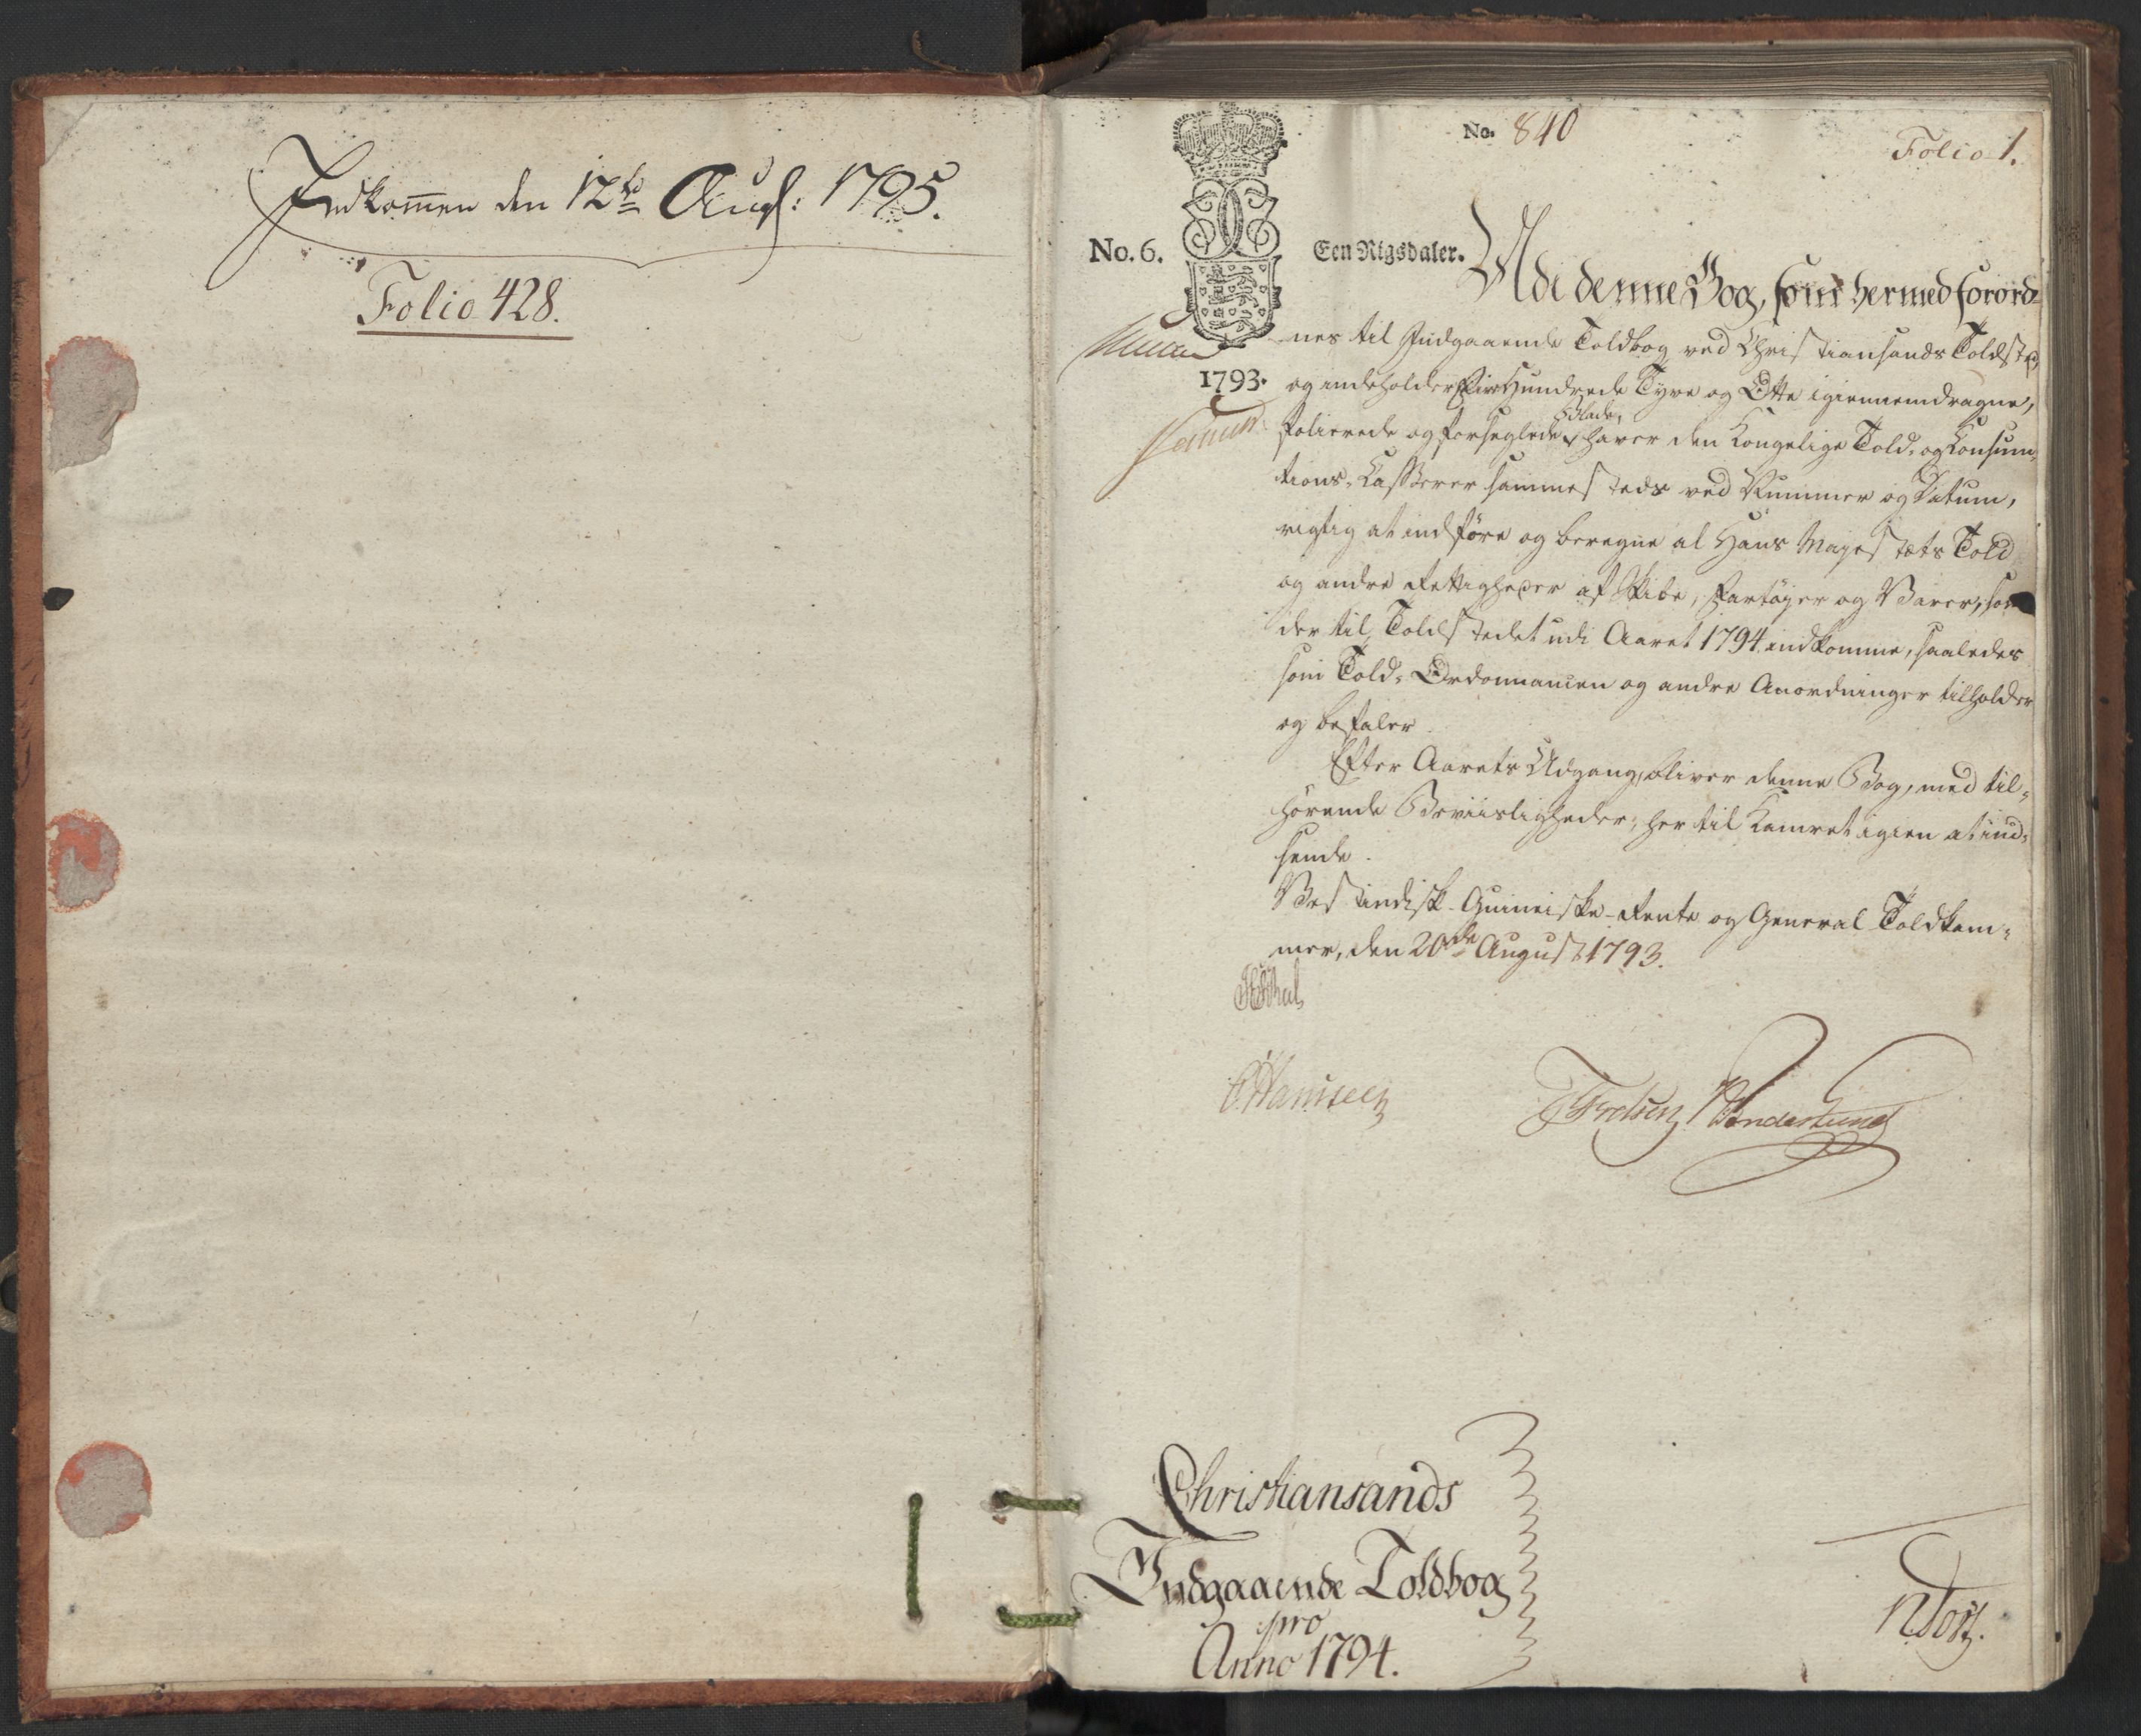 Indkom̄en den 12te Aug: 1795.
Folio 428.
No. 840
Folio 1.
No. 6.
Een Rigsdaler.
1793.
Udi denne Bog, som hermed forord-
nes til Indgaaende Toldbog ved Christiansands Toldsted,
og indeholder Fire Hundrede Tyve og Otte igiennemdragne,
folierede og forseglede Blade, haver den Kongelige Told- og Consum-
tions-Casserer sammesteds ved Nummer og Datum,
rigtig at indføre og beregne al Hans Majestæts Told
og andre Rettigheder af Skibe, Fartøjer og Varer, som
der til Toldstedet udi Aaret 1794 indkomme, saaledes
som Told-Ordonnancen og andre Anordninger tilholder
og befaler.
Efter Aarets Udgang, bliver denne Bog, med til-
hørende Beviisligheder, her til Kamret igien at ind-
sende.
Vestindisk-Guineiske-Rente og General Toldkam-
mer, den 20de August 1793.
Christiansands
Indgaaende Toldbog
pro
Anno 1794.